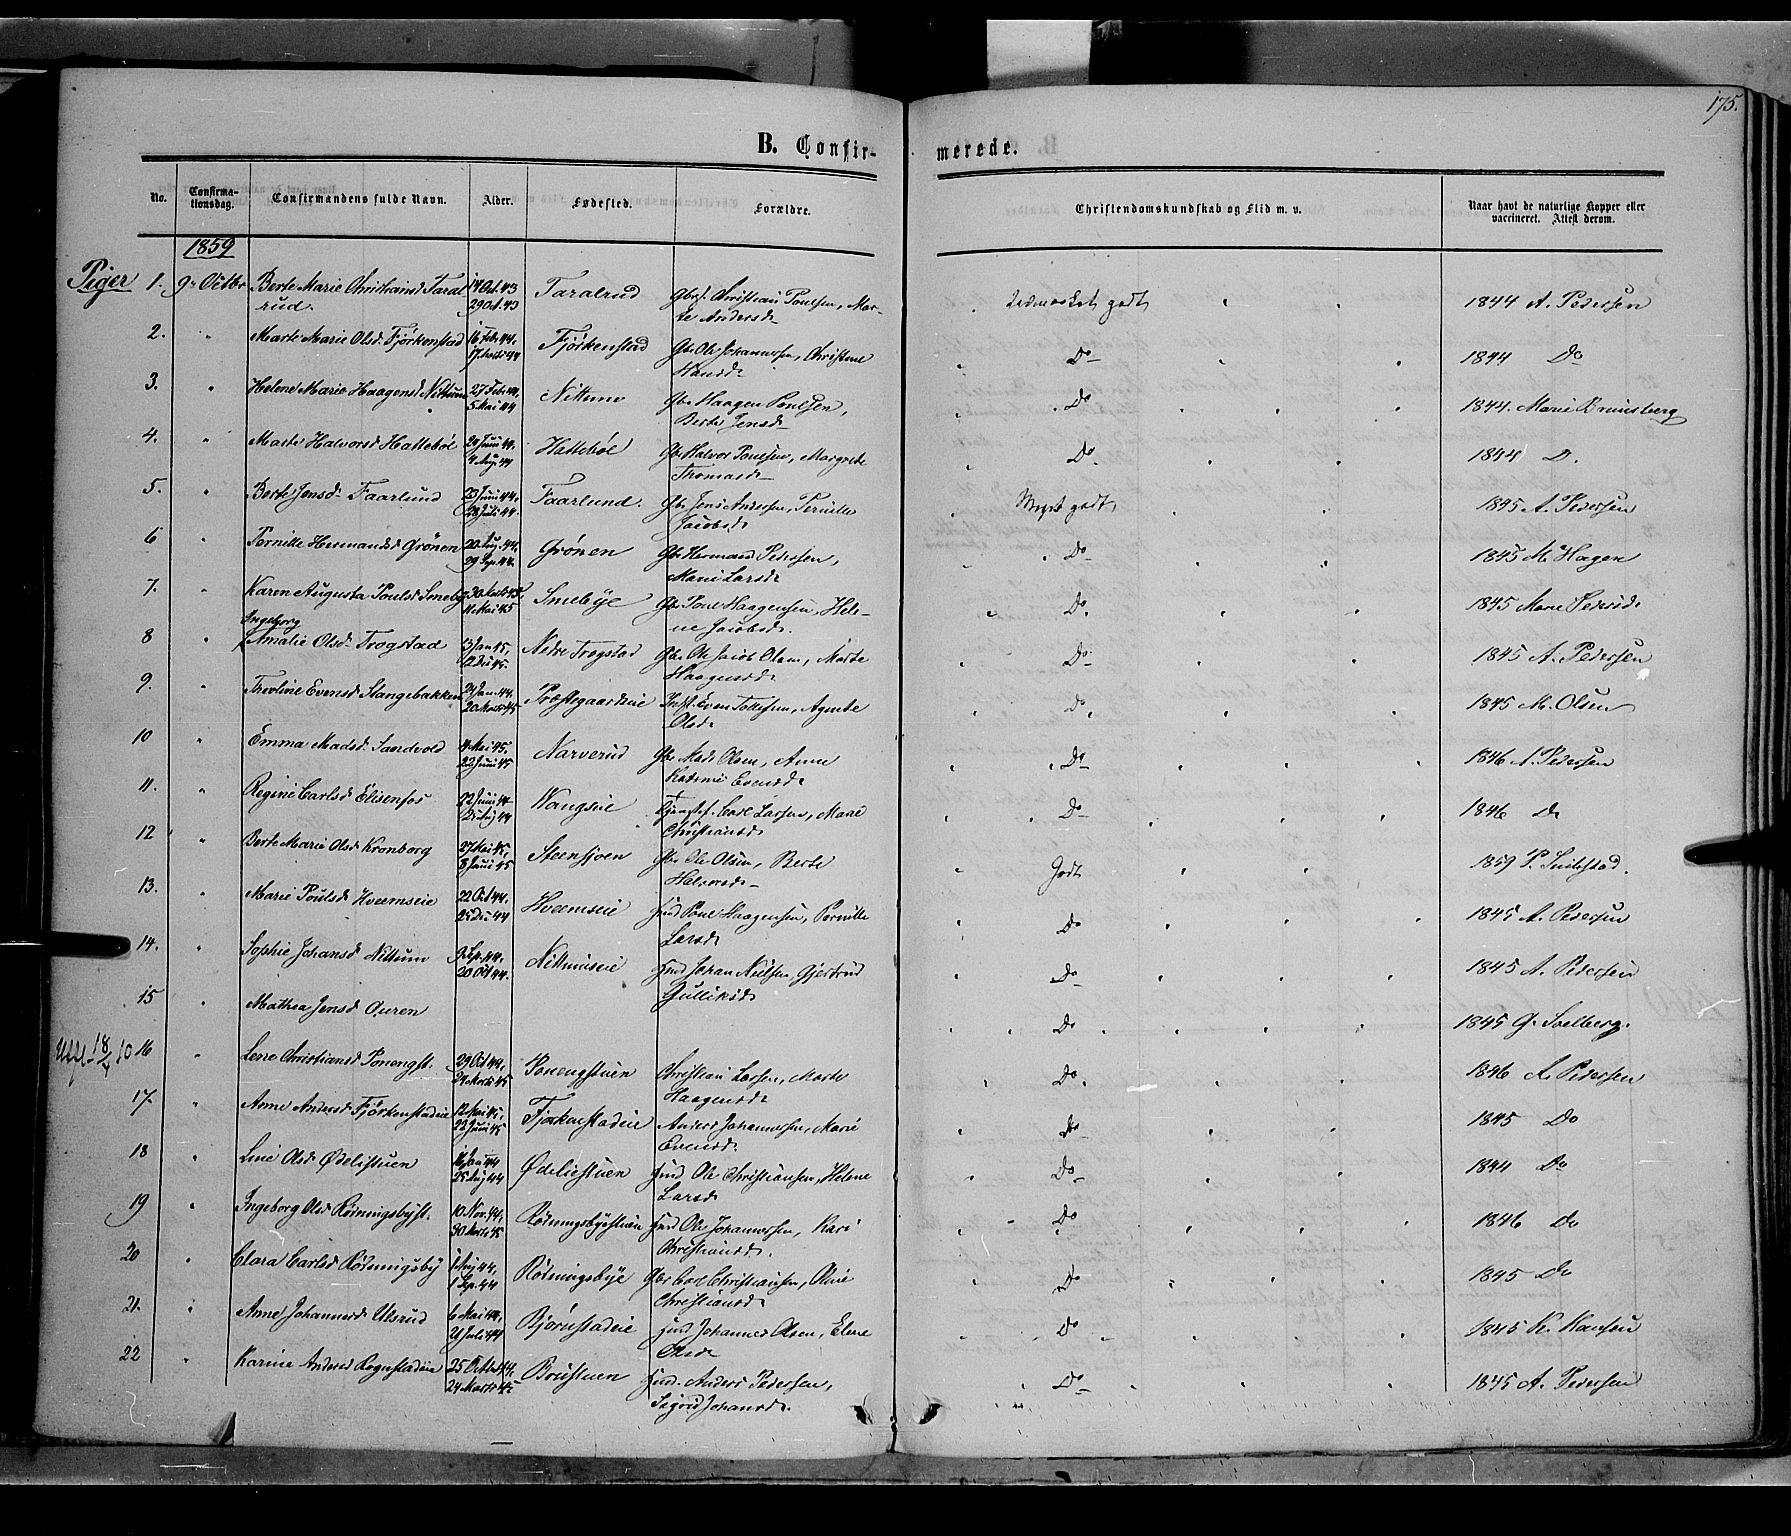 175.
B. Confir- merede.
No. Confirma-tionsdag. Confirmandens fulde Navn. Alder. Fødested. Forældre. Christendomskundskab og Flid m. v. Naar havt de naturlige Kopper eller vaccineret. Attest derom.
1859
Piger 1. 9. Octbr Berte Marie Christiansd Taral 14 Oct. 43 Taralrud Gbr. Christian Poulsen, Mar- godt 1844 A. Pedersen
rud. 29 Oct. 43 te Andersd.
2. " Marte Marie Olsd. Fjørkenstad 16 Feb. 44, Fjørkenstad Gbr Ole Johannessen, Christine Do 1844 Do
17 Marts 44 Hansd.
3. " Helene Marie Haagensd. Nittum 27 Feb. 44, Nittum Gbr Haagen Poulsen, Do 1844. Marie Brunsberg
5 Mai 44 Berte Jensd.
4. " Marte Halvorsd. Hattebøl 24 Juni 44, Hattebøl Gbr Halvor Poulsen, Margrete Do. 1844 D.
4 Aug. 44 Thomasd.
5. " Berte Jensd. Faarlund 23 Juni 44, Faarlund. Gbr Jens Andersen, Pernille Meget godt 1845 A. Pedersen
28 Juli 44. Jacobsd.
6 " Pernille Hermansd Grönen 20 Aug. 44, Grönen Gbr Herman Pedersen, Do 1845 M. Hagen
29 Sep. 44. Marie Larsd.
7. " Karen Augusta Poulsd Smeby 30 Marts 45 Smebye Gbr Poul Haagensen, Hele- Do. 1845 Marie Pedersd.
11 Mai 45 ne Jacobsd.
Ingeborg
8 " Amalie Olsd. Trogstad 13 Jan 45, Nedre Trogstad Gbr Ole Jacob Olsen, Marte Do 1845 A. Pedersen
Haagensd.
9. " Evensd Stangebakken 24 Jan. 44, Præstegaardseie Even Agnete Do 1845 M. Olsen
20 Marts 45 Olsd.
10 " Emma Madsd. Sandvold 4 Mai 45, Narverud Gbr Mads Olsen, Anne Do 1846 A. Pedersen
22 Juni 45 Evensd.
11. " Regine Carlsd Elisenfos 22 Juni 44 Wangseie Carl Larsen, Marie Do 1846 Do
Christiansd.
12 " Berte Marie Olsd Kronborg 27 Mai 45, Steensjoen Gbr Ole Olsen, Berte Godt 1859 P.
8 Juni 45 Halvorsd.
13. " Marie Poulsd Hveemseie 22 Oct 44, Hveemseie Poul Haagensen, Pernille Do 1845 A. Pedersen
25 Dec 44 Larsd.
14. " Sophie Johansd Nittum 9 Sep. 44, Nittumseie Johan Nielsen, Gjertrud Do 1845 A. Pedersen
20 Oct 44. Gulliksd.
15 " Mathea Jensd Ouren Do 1845 G. Soelberg.
16 " Lene Christiansd Ponengst. 29 Oct 44, Ponengstuen Christian Larsen, Marte Do. 1846 A. Pedersen
24 Marts 45 Haagensd.
17. " Anne Andersd Fjørkenstadeie 12 Mai 45, Fjørkenstadeie Anders Johannessen, Marie Do 1845 Do
22 Juni 45 Evensd.
18 " Line Olsd. Ødelistuen 16 Jan 44 Ødeliestuen Ole Christiansen, Helene Do 1844 Do
25 Aug 44 Larsd.
19 " Ingeborg Olsd Rødningsbyst. 10 Nov. 44, Rødningsbyestuen Ole Johannessen, Kari Do 1846 Do
30 Marts 45 Christiansd.
20 " Clara Carlsd Rødningsby 1 Aug 44, Rødningsbye Gbr Carl Christiansen, Oline Do 1845 Do
1 Sep. 44 Christiansd.
21. " Anne Johannesd Ulsrud 6 Mai 44, Bjørnstadeie Johannes Olsen, Elene Do 1845 K. Hansen
21 Juli 44 Olsd.
22 " Karine Andersd Rognstadeie 25 Octbr 44, Brustuen Anders Pedersen, Do 1845 A. Pedersen
24 Marts 45 Sigrid Johansd.